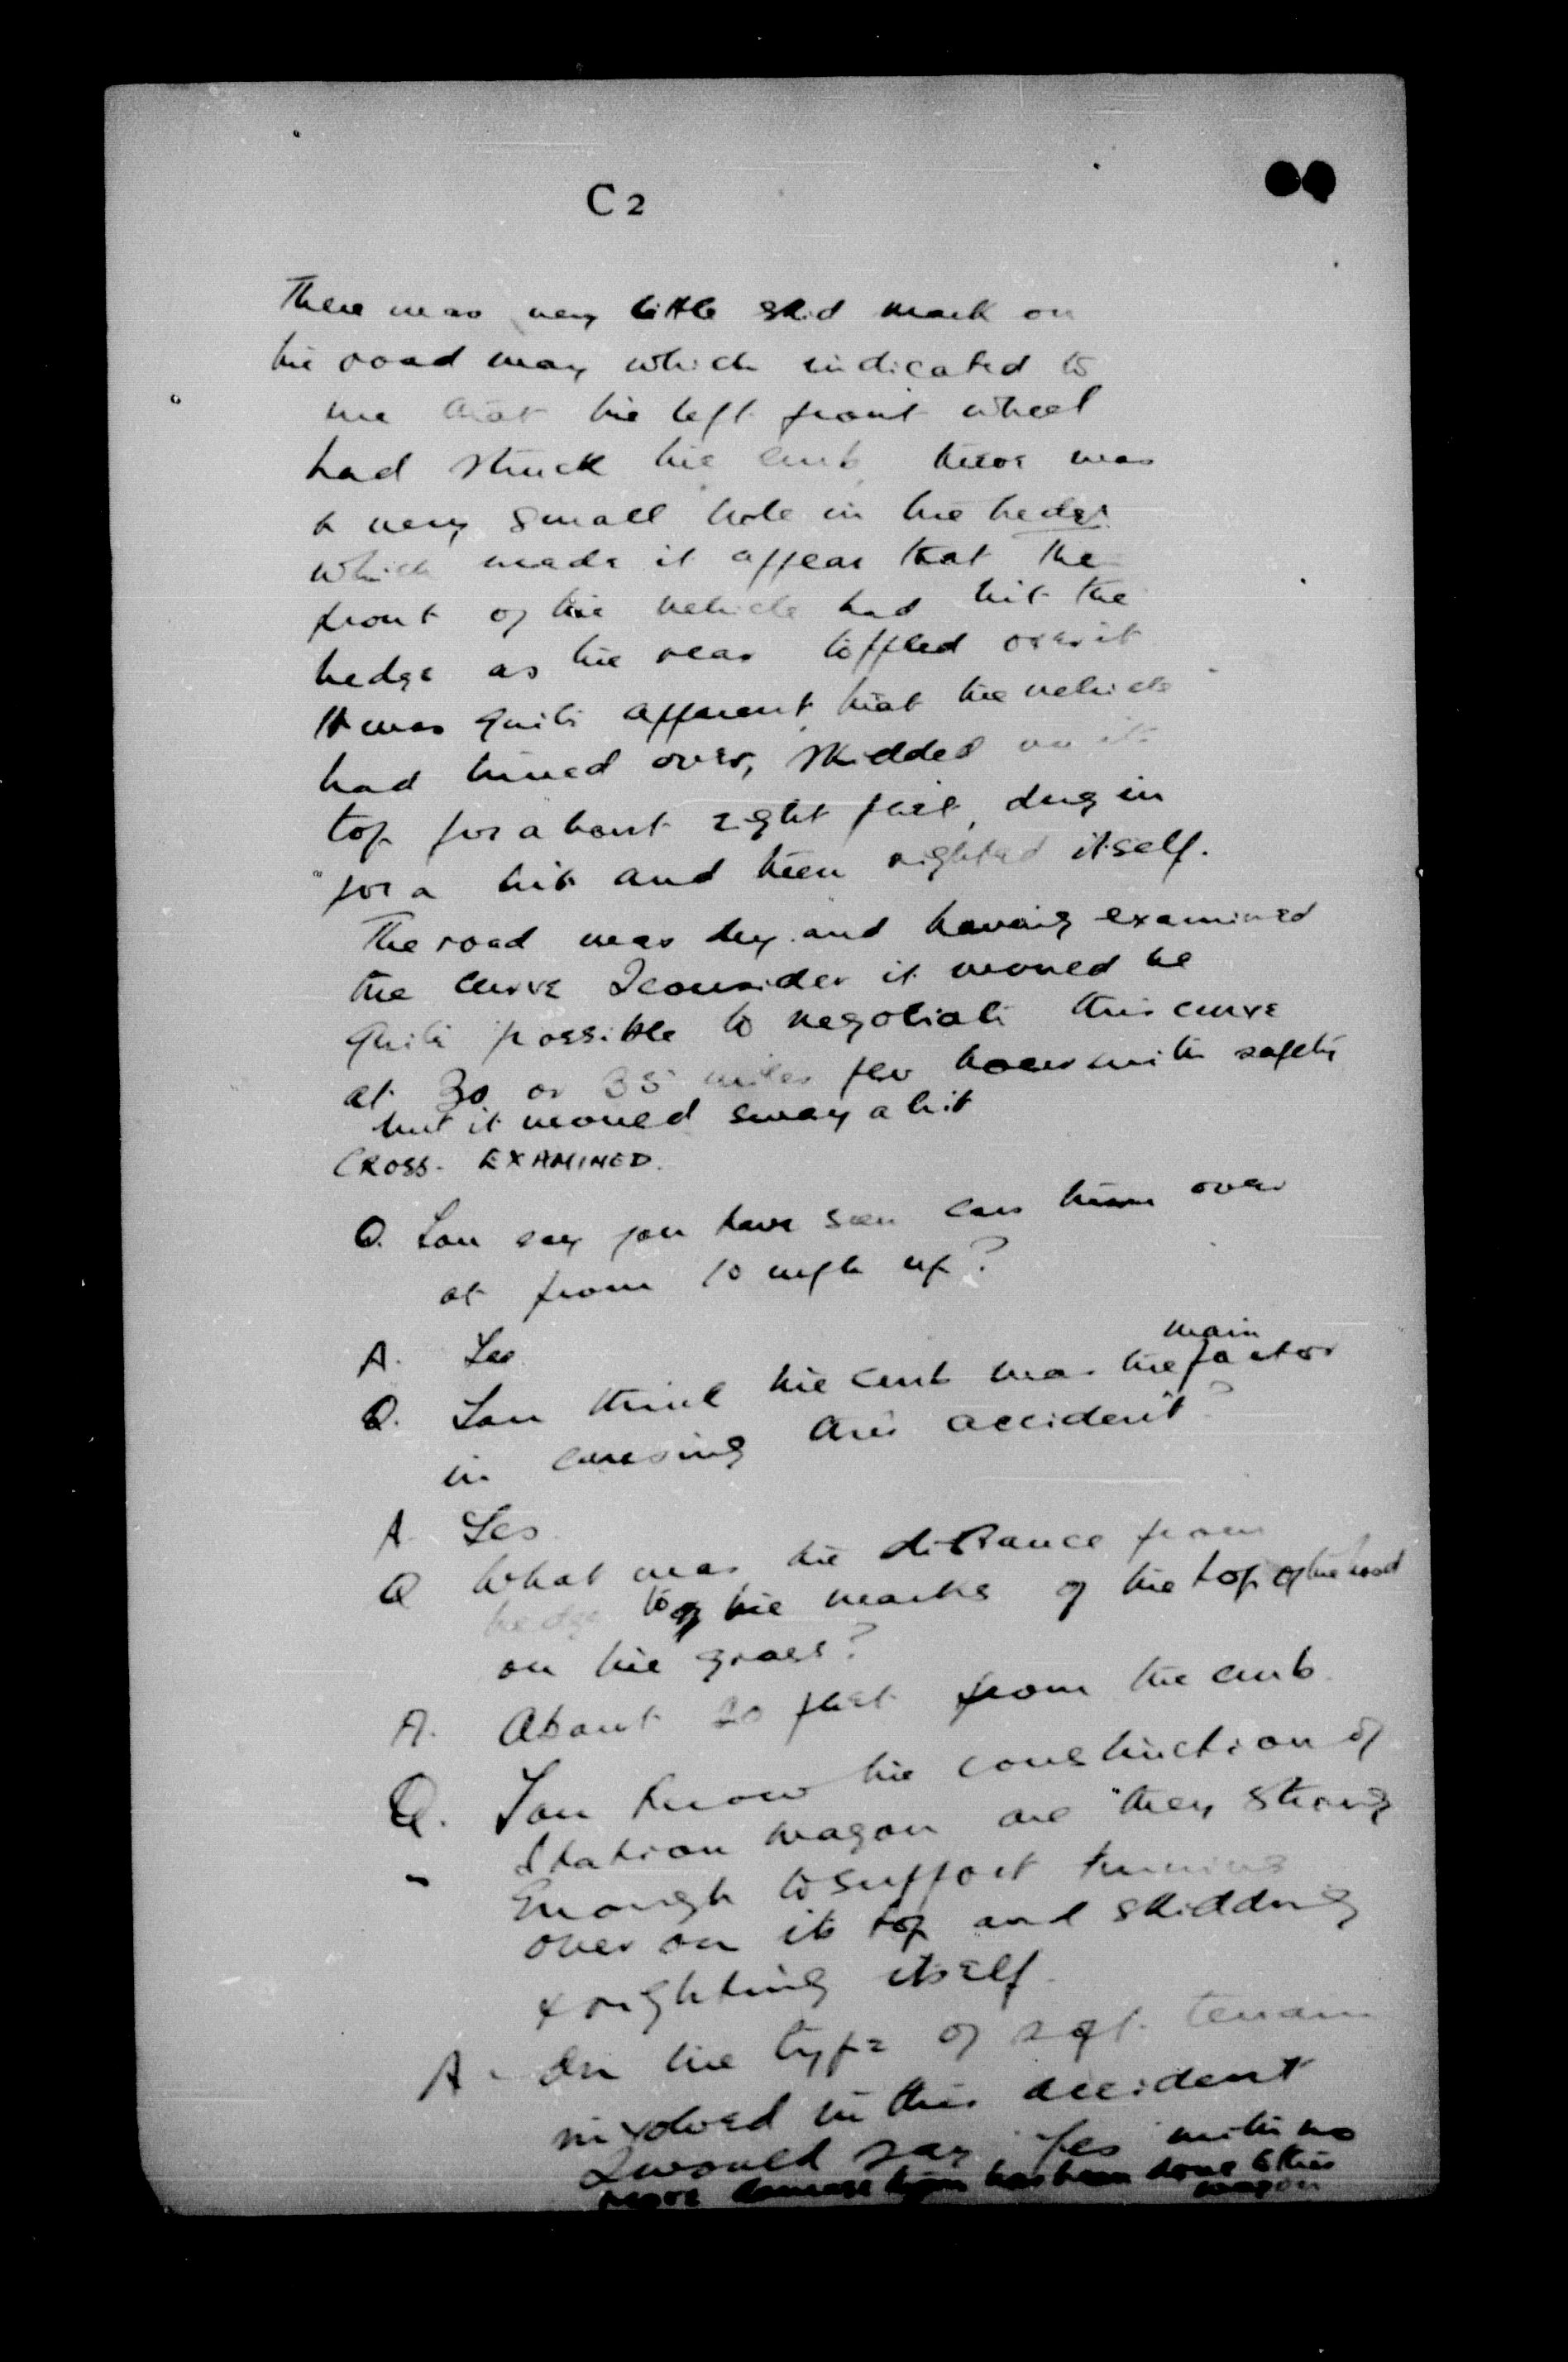 C 2
There was very little skid mark on
the road way which indicated to
me that the left front wheel
had struck the curb, there was
a very small hole in the hedge
which made it appear that the
front of the vehicle had hit the
hedge as the rear toppled over it
It was quite apparent that the vehicle
had turned over, skidded on its
top for about eight feet, dug in
for a bit and then righted itself.
The road was dry and having examined
the curve I consider it would be
quite possible to negotiate this curve
at 30 or 35 miles per hour with safety
but it would sway a bit
CROSS-EXAMINED.
Q. You say you have seen cars turn over
at from 10 mph up?
A. Yes
main
Q. You think the curb was the factor
in causing this accident?
A. Yes
Q What was the distance from
hedge to the marks of the top of the hood
on the grass?
A. About 20 feet from the curb.
Q. You know the construction of
Station wagon are they strong
enough to support turning
over on its top and skidding
& righting itself.
A. On the type of soft terrain
involved in this accident
I would say Yes with no
more damage than has been done to this
wagon